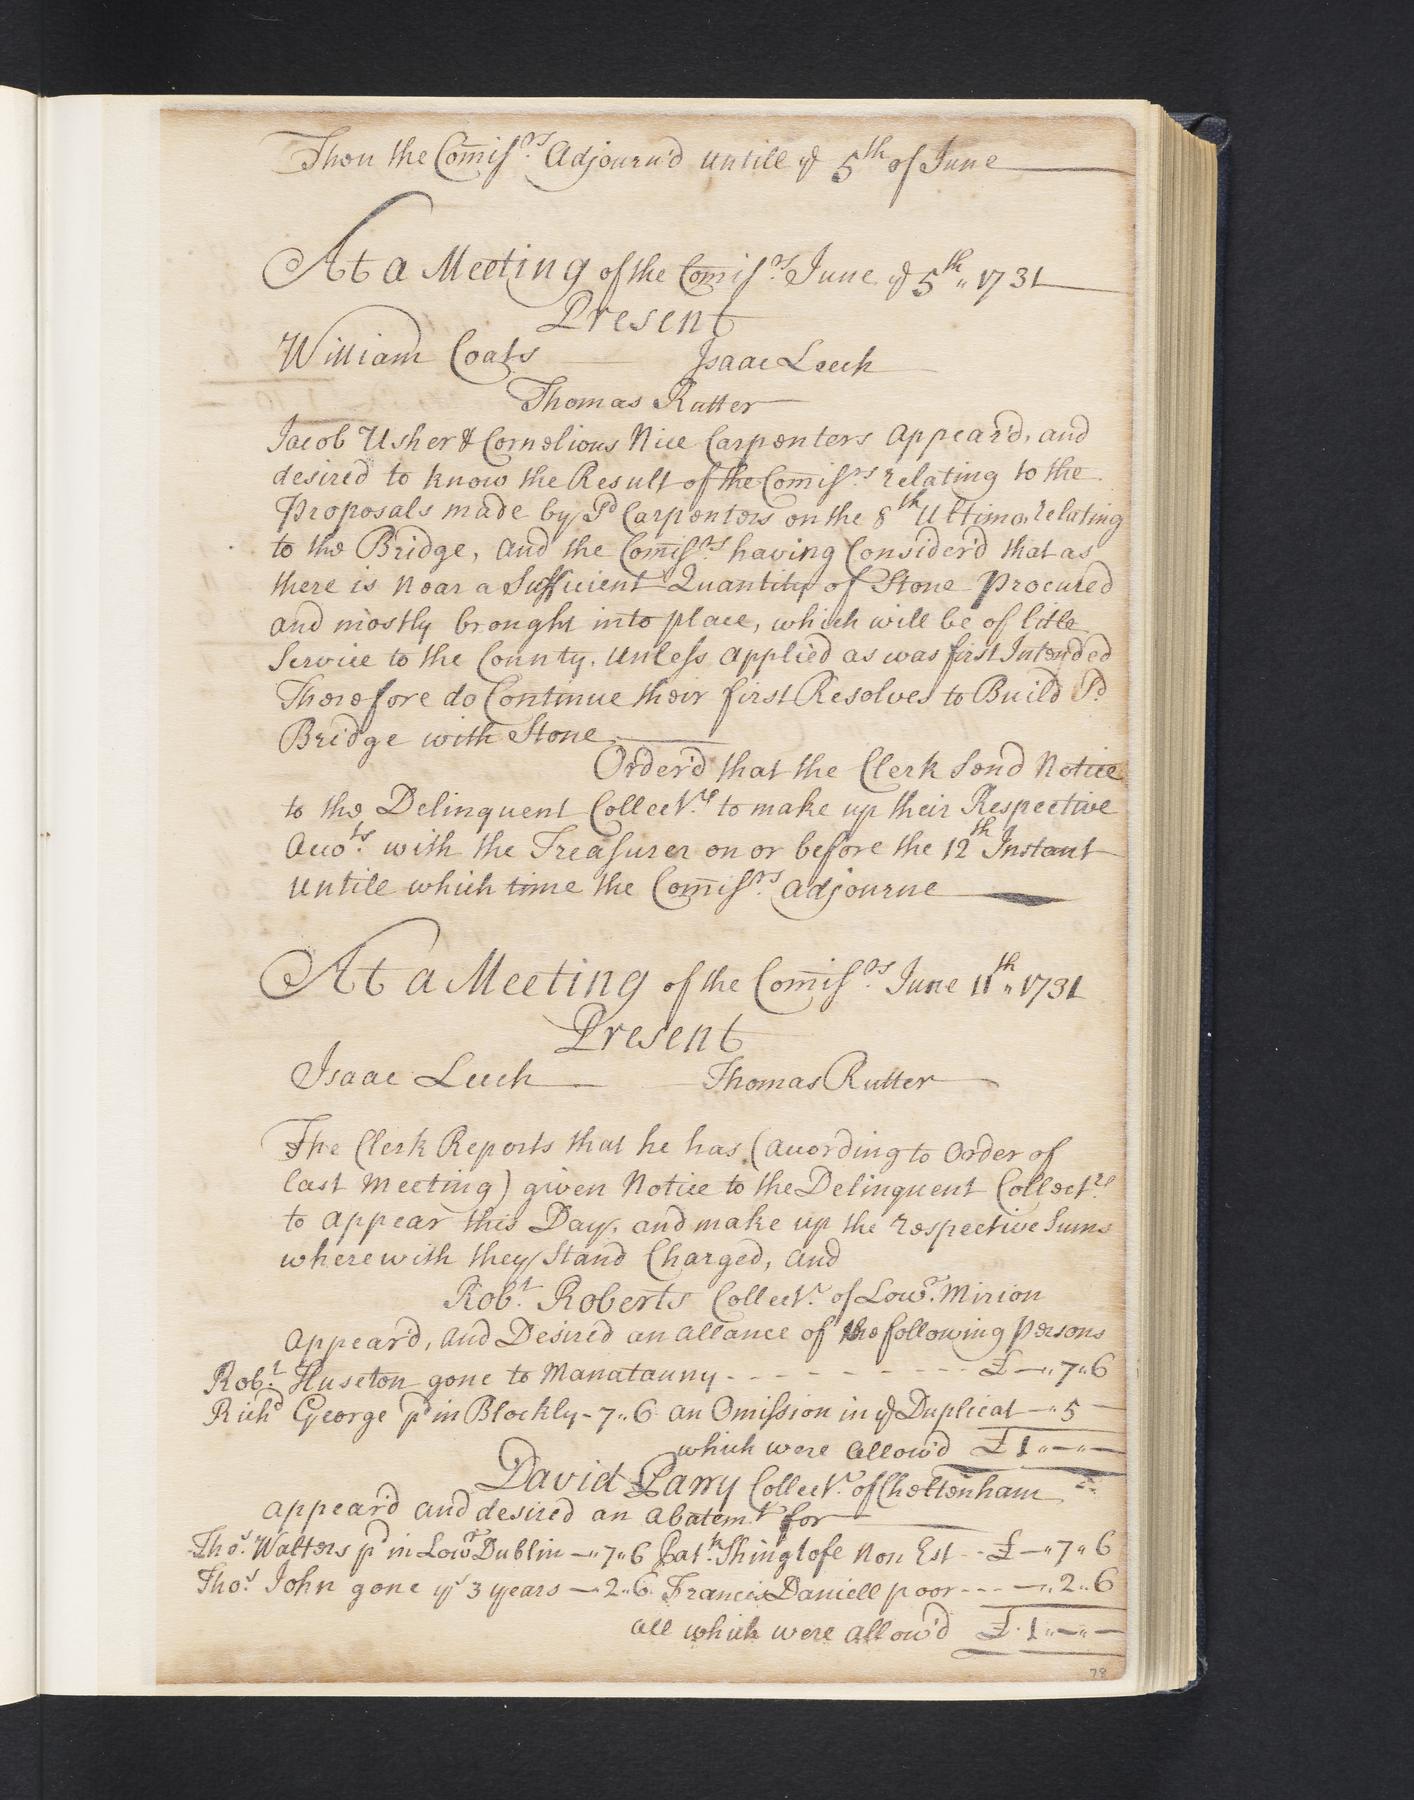 Then the Com̄iſ.rs Adjourn'd untill ye 5th of June
At a Meeting of the Com̄iſ.rs June ye 5th 1731
Present
William Coats Isaac Leech
Thomas Rutter
Jacob Usher & Cornelious Nice Carpenters appear'd, and
desired to know the Result of the Com̄iſ.rs relating to the
Proposals made by Sd Carpenters on the 8th Ultimo, relating
to the Bridge, and the Com̄iſ.rs having Consider'd that as
there is near a Sufficient Quantity of Stone procured
and mostly brought into place, which will be of litle
Service to the County, unleſs applied as was first Intended
Therefore do Continue their first Resolves to Build Sd
Bridge with Stone
Order'd that the Clerk Send Notice
to the Delinquent Collect.rs to make up their Respective
Acco.ts with the Treaſurer on or before the 12th Instant
untill which time the Com̄iſ.rs adjourne
At a Meeting of the Com̄iſ.rs June 11th 1731
Present
Isaac Leech Thomas Rutter
The Clerk Reports that he has (according to order of
last Meeting) given Notice to the Delinquent Collect.rs
to appear this Day, and make up the respective Sums
wherewith they Stand Charged, and
Rob.t Roberts Collect.r of Low.r Mirion
appear'd, and Desired an allance of the following persons
Rob.t Huseton gone to Manatauny - - - - - - - - £ — " 7 " 6
Rich.d George pd in Blockly - 7 " 6 an Omiſsion in ye Duplicat — " 5 —
which were allow'd £ 1 " — " —
David Parry Collect.r of Cheltenham
appear'd and desired an abatem.t for
Tho.s Walters pd in Low.r Dublin — " 7 " 6 Pat.k Shinglofe Non Est - - £ — " 7 " 6
Tho.s John gone ys 3 years — " 2 " 6 Francis Daniell poor - - - — " 2 " 6
all which were allow'd £ 1 " — " —
78